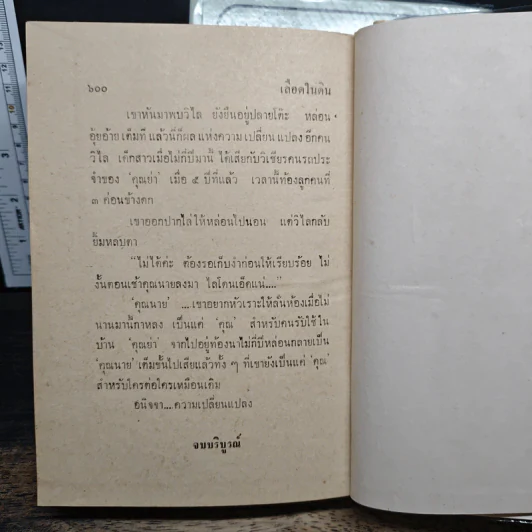 ๖๐๐ เลือดในดิน
เขาหันมาพบวิไล ยังยืนอยู่ปลายโต๊ะ หล่อน
อุ้ยอ้ายเต็มที แล้วนี่ก็ผลแห่งความเปลี่ยนแปลงอีกคน
วิไล เด็กสาวเมื่อไม่กี่ปีมานี้ ได้เสียกับวิเชียรคนรถประ
จำของ 'คุณย่า' เมื่อ ๕ ปีที่แล้ว เวลานี้ท้องลูกคนที่
๓ ค่อนข้างดก
เขาออกปากไล่ให้หล่อนไปนอน แต่วิไลกลับ
ยิ้มหลบตา
"ไม่ได้ค่ะ ต้องรอเก็บงำก่อนให้เรียบร้อย ไม่
งั้นตอนเช้าคุณนายลงมา ไล่โดนเอ็ดแน่...."
'คุณนาย' ...เขาอยากหัวเราะให้ลั่นห้องเมื่อไม่
นานมานี้กาหลง เป็นแค่ 'คุณ' สำหรับคนรับใช้ใน
บ้าน 'คุณย่า' จากไปอยู่ท้องนาไม่กี่ปีหล่อนกลายเป็น
'คุณนาย' เต็มขั้นไปเสียแล้วทั้ง ๆ ที่เขายังเป็นแค่ 'คุณ'
สำหรับใครต่อใครเหมือนเดิม
อนิจจา...ความเปลี่ยนแปลง
จบบริบูรณ์